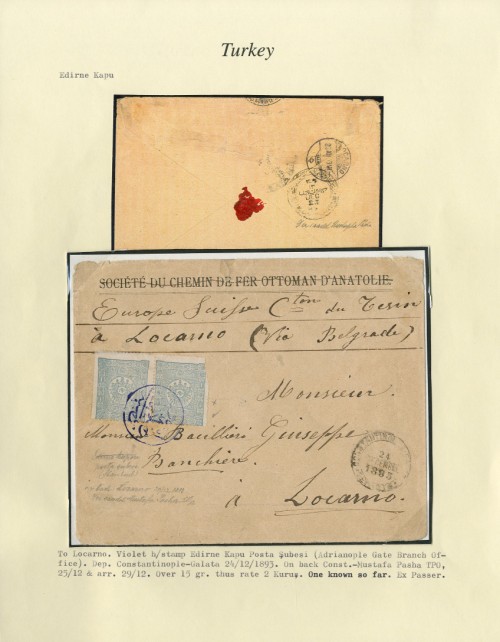 Turkey
Edirne Kapu
SOCIÉTÉ DU CHEMIN DE FER OTTOMAN D'ANATOLIE.
Europe Suisse Cton du Tesin
à Locarno (Via Belgrade)
Monsieur
Monsieur Bacilliéri Giuseppe
Banchiere
à Locarno.
24
1893
To Locarno. Violet h/stamp Edirne Kapu Posta Şubesi (Adrianople Gate Branch Of-
fice). Dep. Constantinople-Galata 24/12/1893. On back Const.-Mustafa Pasha TPO,
25/12 & arr. 29/12. Over 15 gr. thus rate 2 Kuruş. One known so far. Ex Passer.